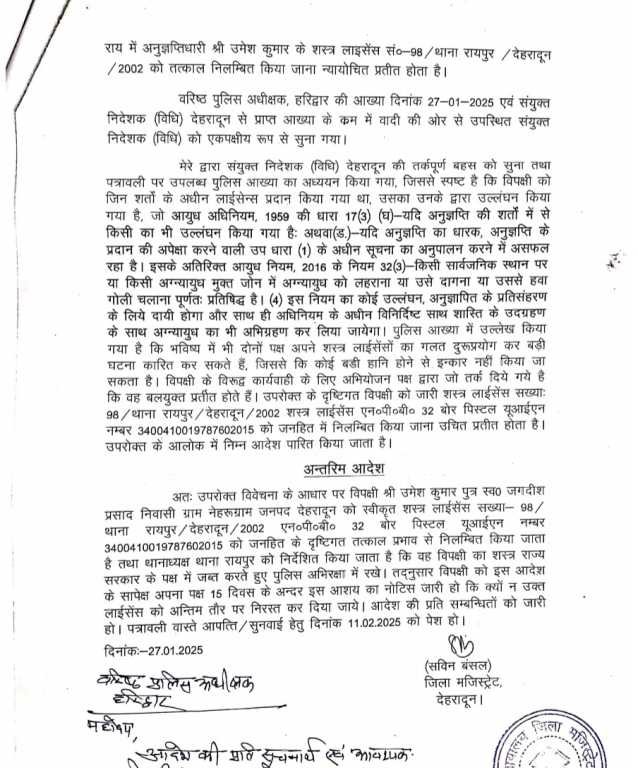 राय में अनुज्ञप्तिधारी श्री उमेश कुमार के शस्त्र लाइसेंस सं०–98/थाना रायपुर /देहरादून
/2002 को तत्काल निलम्बित किया जाना न्यायोचित प्रतीत होता है।
वरिष्ठ पुलिस अधीक्षक, हरिद्वार की आख्या दिनांक 27–01–2025 एवं संयुक्त
निदेशक (विधि) देहरादून से प्राप्त आख्या के कम में वादी की ओर से उपस्थित संयुक्त
निदेशक (विधि) को एकपक्षीय रूप से सुना गया।
मेरे द्वारा संयुक्त निदेशक (विधि) देहरादून की तर्कपूर्ण बहस को सुना तथा
पत्रावली पर उपलब्ध पुलिस आख्या का अध्ययन किया गया, जिससे स्पष्ट है कि विपक्षी को
जिन शर्तो के अधीन लाईसेन्स प्रदान किया गया था, उसका उनके द्वारा उल्लंघन किया
गया है, जो आयुध अधिनियम, 1959 की धारा 17(3) (घ)–यदि अनुज्ञप्ति की शर्तों में से
किसी का भी उल्लंघन किया गया हैः अथवा(ड.)–यदि अनुज्ञप्ति का धारक, अनुज्ञप्ति के
प्रदान की अपेक्षा करने वाली उप धारा (1) के अधीन सूचना का अनुपालन करने में असफल
रहा है। इसके अतिरिक्त आयुध नियम, 2016 के नियम 32(3)–किसी सार्वजनिक स्थान पर
या किसी अग्न्यायुध मुक्त जोन में अग्न्यायुध को लहराना या उसे दागना या उससे हवा
गोली चलाना पूर्णतः प्रतिषिद्ध है। (4) इस नियम का कोई उल्लंघन, अनुज्ञापित के प्रतिसंहरण
के लिये दायी होगा और साथ ही अधिनियम के अधीन विनिर्दिष्ट साथ शास्ति के उदग्रहण
के साथ अग्न्यायुध का भी अभिग्रहण कर लिया जायेगा। पुलिस आख्या में उल्लेख किया
गया है कि भविष्य में भी दोनों पक्ष अपने शस्त्र लाईसेंसों का गलत दुरूप्रयोग कर बड़ी
घटना कारित कर सकते हैं, जिससे कि कोई बडी हानि होने से इन्कार नहीं किया जा
सकता है। विपक्षी के विरूद्व कार्यवाही के लिए अभियोजन पक्ष द्वारा जो तर्क दिये गये है
कि वह बलयुक्त प्रतीत होते हैं। उपरोक्त के दृष्टिगत विपक्षी को जारी शस्त्र लाईसेंस सख्याः
98/थाना रायपुर/देहरादून/2002 शस्त्र लाईसेंस एन०पी०बी० 32 बोर पिस्टल यूआईएन
नम्बर 3400410019787602015 को जनहित में निलम्बित किया जाना उचित प्रतीत होता है।
उपरोक्त के आलोक में निम्न आदेश पारित किया जाता है।
अन्तरिम आदेश
अतः उपरोक्त विवेचना के आधार पर विपक्षी श्री उमेश कुमार पुत्र स्व0 जगदीश
प्रसाद निवासी ग्राम नेहरूग्राम जनपद देहरादून को स्वीकृत शस्त्र लाईसेंस सख्या– 98/
थाना रायपुर/देहरादून/2002 एन०पी०बी० 32 बोर पिस्टल यूआईएन नम्बर
3400410019787602015 को जनहित के दृष्टिगत तत्काल प्रभाव से निलम्बित किया जाता
है तथा थानाध्यक्ष थाना रायपुर को निर्देशित किया जाता है कि वह विपक्षी का शस्त्र राज्य
सरकार के पक्ष में जब्त करते हुए पुलिस अभिरक्षा में रखे। तद्नुसार विपक्षी को इस आदेश
के सापेक्ष अपना पक्ष 15 दिवस के अन्दर इस आशय का नोटिस जारी हो कि क्यों न उक्त
लाईसेंस को अन्तिम तौर पर निरस्त कर दिया जाये। आदेश की प्रति सम्बन्धितों को जारी
हो। पत्रावली वास्ते आपत्ति/सुनवाई हेतु दिनांक 11.02.2025 को पेश हो।
दिनांकः–27.01.2025
(सविन बंसल)
जिला मजिस्ट्रेट,
देहरादून।
वरिष्ठ पुलिस अधीक्षक
हरिद्वार
महोदय,
आदेश की प्रति सूचनार्थ एवं आवश्यक
जिला मजिस्ट्रेट